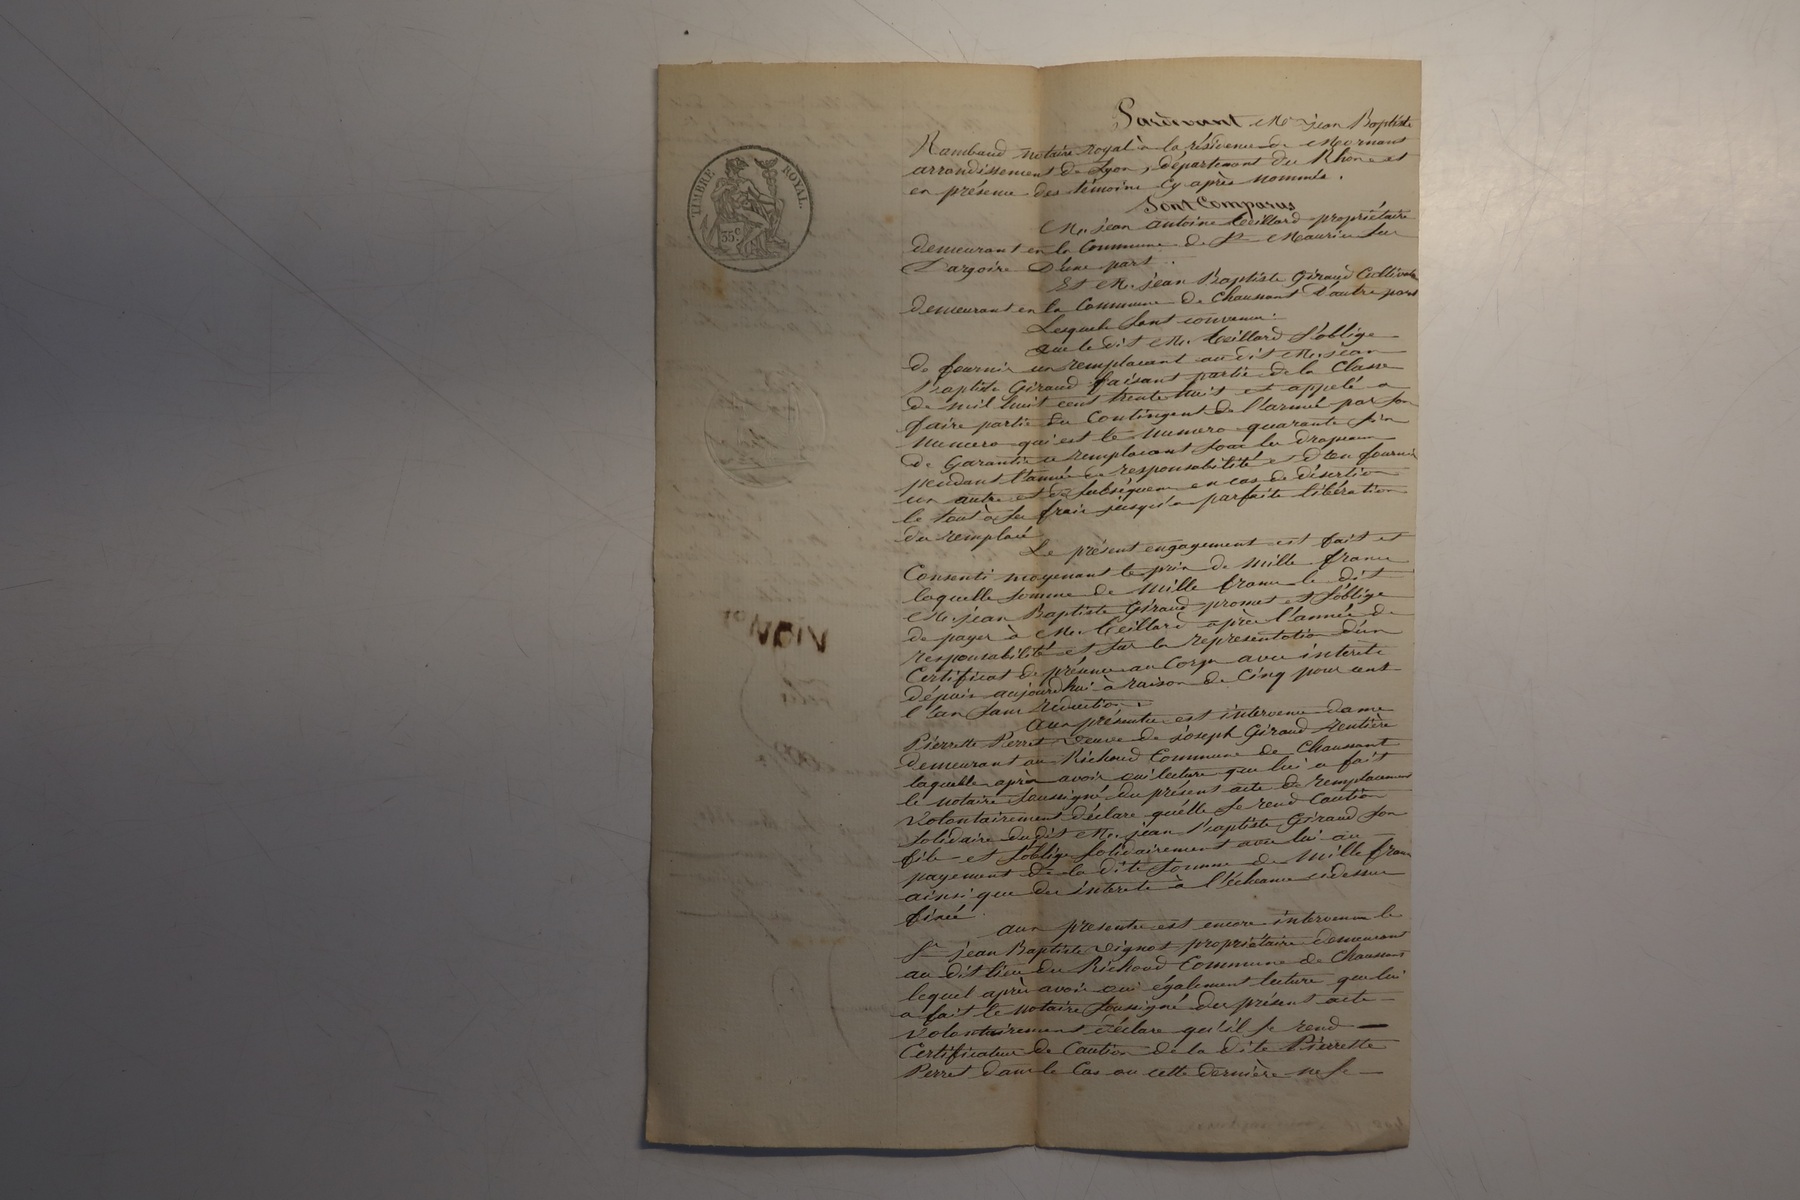 TIMBRE ROYAL.
35 c
Pardevant Me jean Baptiste
Rambaud notaire royal à la résidence de Mornant
arrondissement de Lyon, département du Rhône et
en présence des témoins cy après nommés.
Sont Comparus
Mr. jean antoine Teillard propriétaire
demeurant en la Commune de St Maurice sur
Dargoire D'une part.
Et Mr. jean Baptiste Giraud Cultivateur
demeurant en la Commune de Chaussant d'autre part
Lesquels sont convenus.
Que le dit Mr. Teillard s'oblige
de fournir un remplacant au dit Mr. jean
Baptiste Giraud faisant partie de la Classe
de mil huit cent trente huit et appelé a
faire partie du Contingent de l'armée par son
numero qui est le numero quarante six
de Garantir ce remplacant sous les drapeaux
pendant l'année de responsabilité et d'en fournir
un autre et de subséquens en cas de désertion
le tout à ses frais jusqu'a parfaite libération
du remplacé
Le présent engagement est fait et
Consenti moyenant le prix de mille francs
laquelle somme de mille francs le dit
Mr. jean Baptiste Giraud promet et s'oblige
de payer à Mr. Teillard après l'année de
responsabilité et sur la représentation d'un
Certificat de présence au Corps avec intérêts
dépuis aujourdhui à raison de Cinq pour cent
l'an sans réduction.
Aux présentes est intervenue dame
Pierrette Perret veuve de joseph Giraud rentière
demeurant au Richoud Commune de Chaussant
laquelle après avoir oui lecture que lui a fait
le notaire soussigné du présent acte de remplacement
volontairement déclare qu'elle se rend Caution
solidaire du dit Mr. jean Baptiste Giraud son
fils et s'oblige solidairement avec lui au
payement de la dite somme de mille francs
ainsi que des intérêts à l'échéance ci dessus
fixée.
aux presentes est encore intervenu le
Sr jean Baptiste vignot propriétaire demeurant
au dit lieu du Richoud Commune de Chaussant
lequel après avoir oui également lecture que lui
a fait le notaire soussigné du présent acte
volontairement déclare qu'il se rend
Certificateur de Caution de la dite Pierrette
Perret dans le Cas ou cette dernière ne se